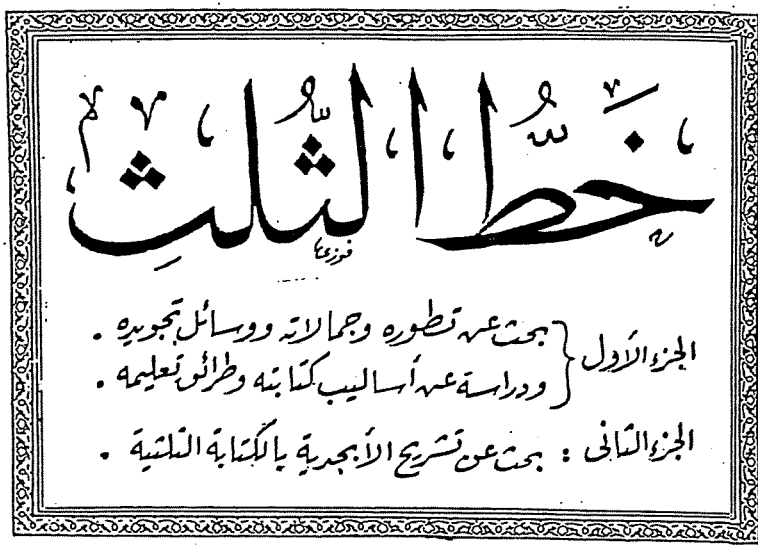 خَطُّ الثُّلُثِ
الجزء الأول { بحث عن تطوره وجمالاته ووسائل تجويده .
ودراسة عن أساليب كتابته وطرائق تعليمه .
الجزء الثانى : بحث عن تشريح الأبجدية بالكتابة الثلثية .